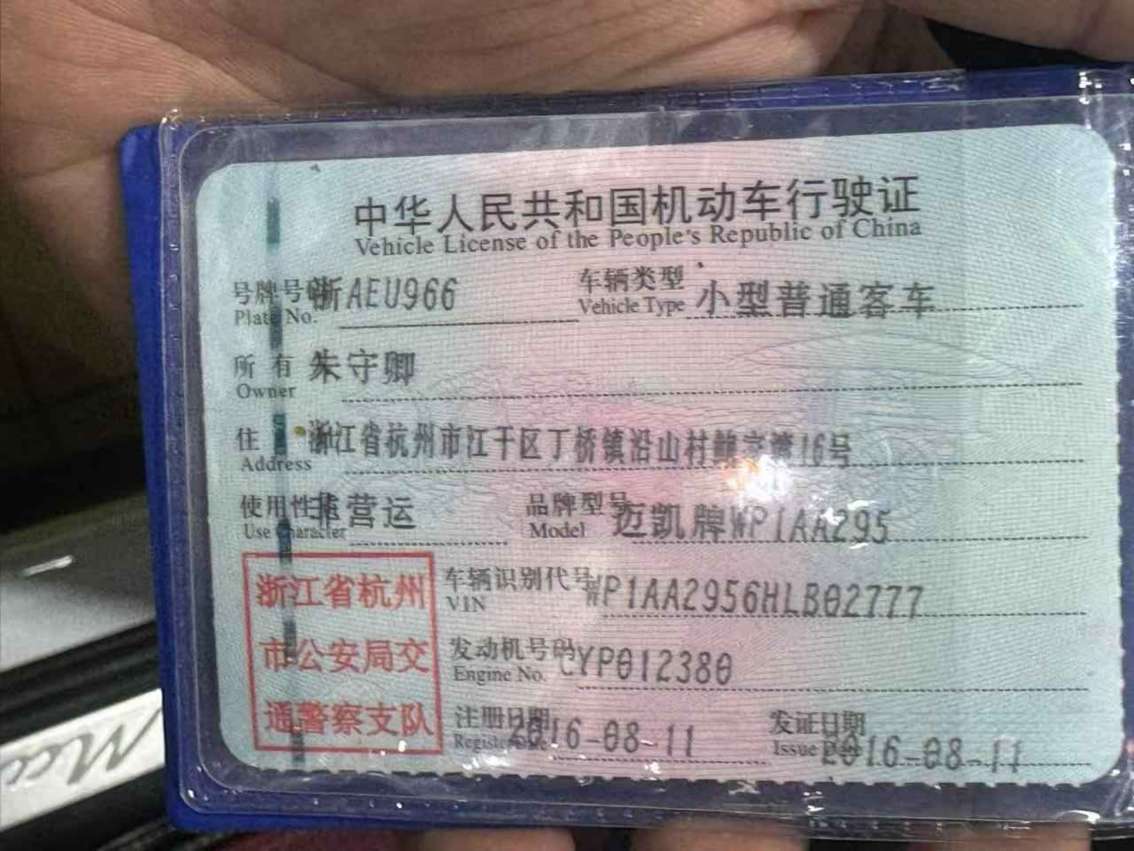 中华人民共和国机动车行驶证
Vehicle License of the People's Republic of China
号牌号 浙AEU966 车辆类型 小型普通客车
Plate No. Vehicle Type
所有 朱守卿
Owner
住 浙江省杭州市江干区丁桥镇沿山村鲍家湾16号
Address
使用性 非营运 品牌型号 迈凯牌WP1AA295
Use Character Model
浙江省杭州
市公安局交
通警察支队
车辆识别代号 WP1AA2956HLB02777
VIN
发动机号码 CYP012380
Engine No.
注册日期 2016-08-11 发证日期 2016-08-11
Register Date Issue Date